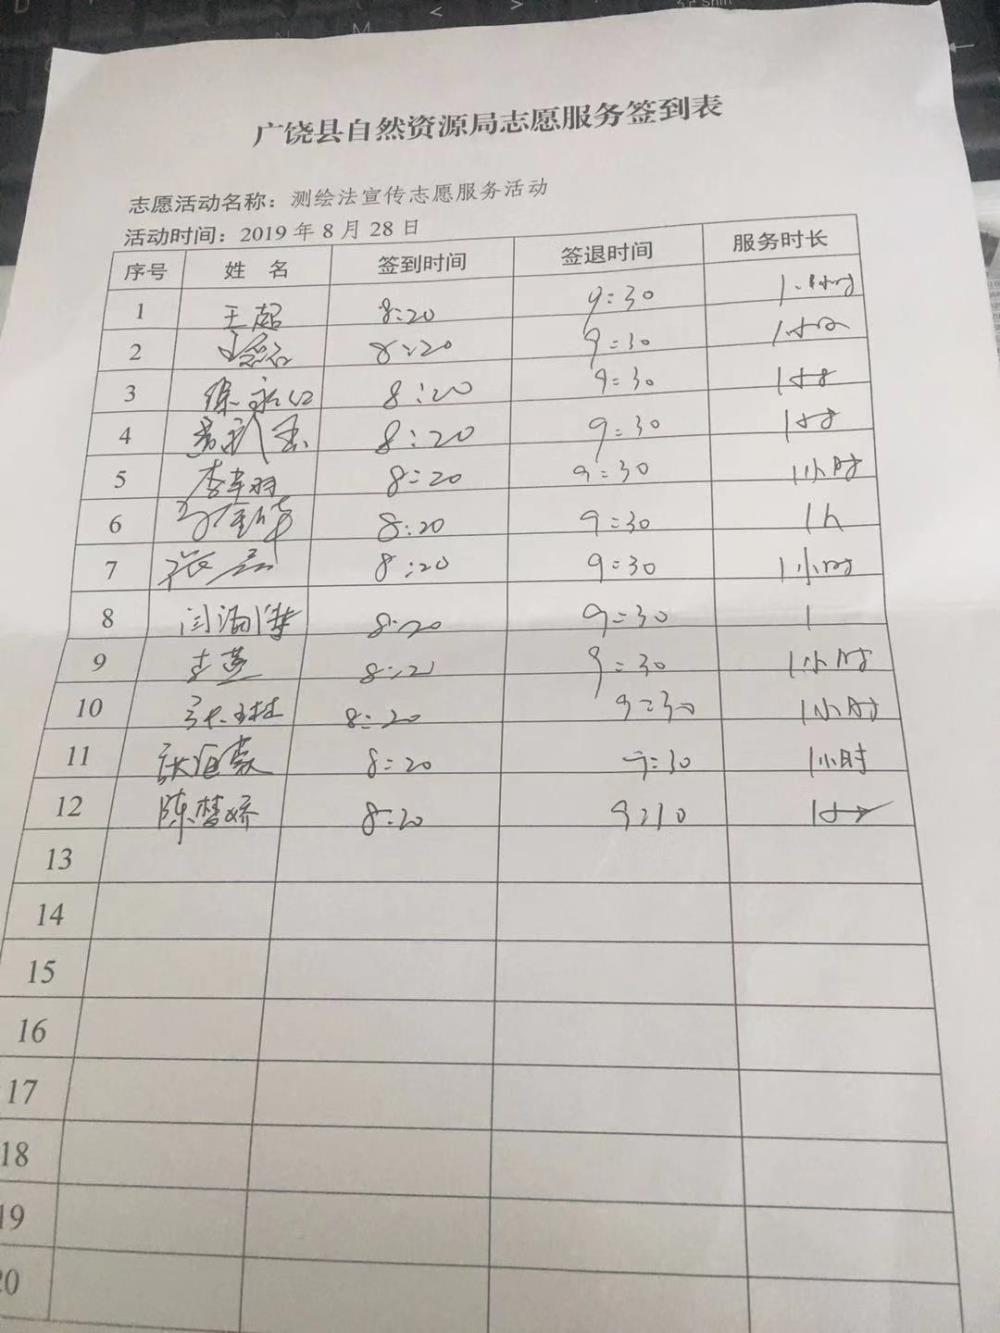 广饶县自然资源局志愿服务签到表
志愿活动名称：测绘法宣传志愿服务活动
活动时间：2019 年 8 月 28 日
序号 姓 名 签到时间 签退时间 服务时长
1 王超 8:20 9:30 小时
2 8:20 9:30 1小时
3 徐 8:20 9:30 1小时
4 8:20 9:30 1小时
5 李 8:20 9:30 1小时
6 8:20 9:30 1h
7 张 8:20 9:30 1小时
8 闫 8:20 9:30 1
9 李燕 9:30 1小时
10 8:20 9:30 1小时
11 张 8:20 9:30 1小时
12 陈梦娇 8:20 1小时
13
14
15
16
17
18
19
20